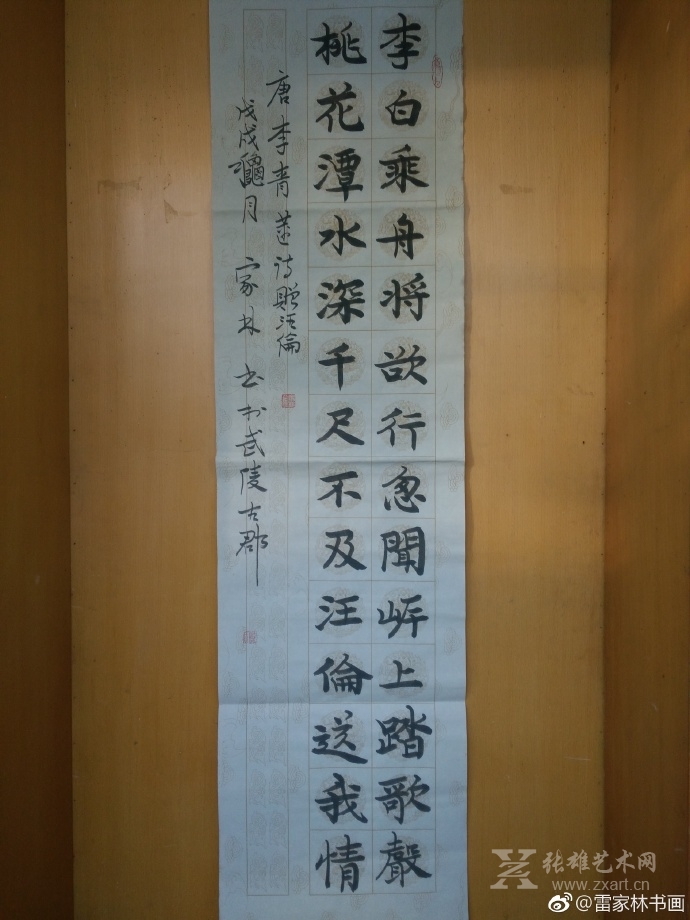 李白乘舟将欲行忽聞岸上踏歌聲
桃花潭水深千尺不及汪倫送我情
唐李青莲诗贈汪倫
戊戌龝月 家林 书於武陵古郡
张雄艺术网
www.zxart.cn
@雷家林书画